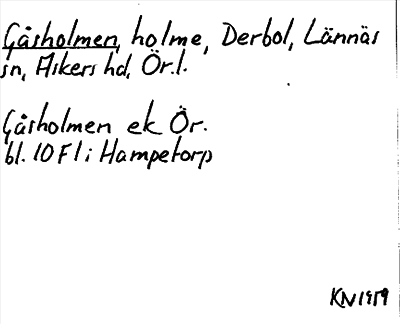 Gåsholmen, holme, Derbol, Lännäs
sn, Askers hd, Ör.l.
Gåsholmen ek Ör.
bl. 10 F1 i Hampetorp
KN1959